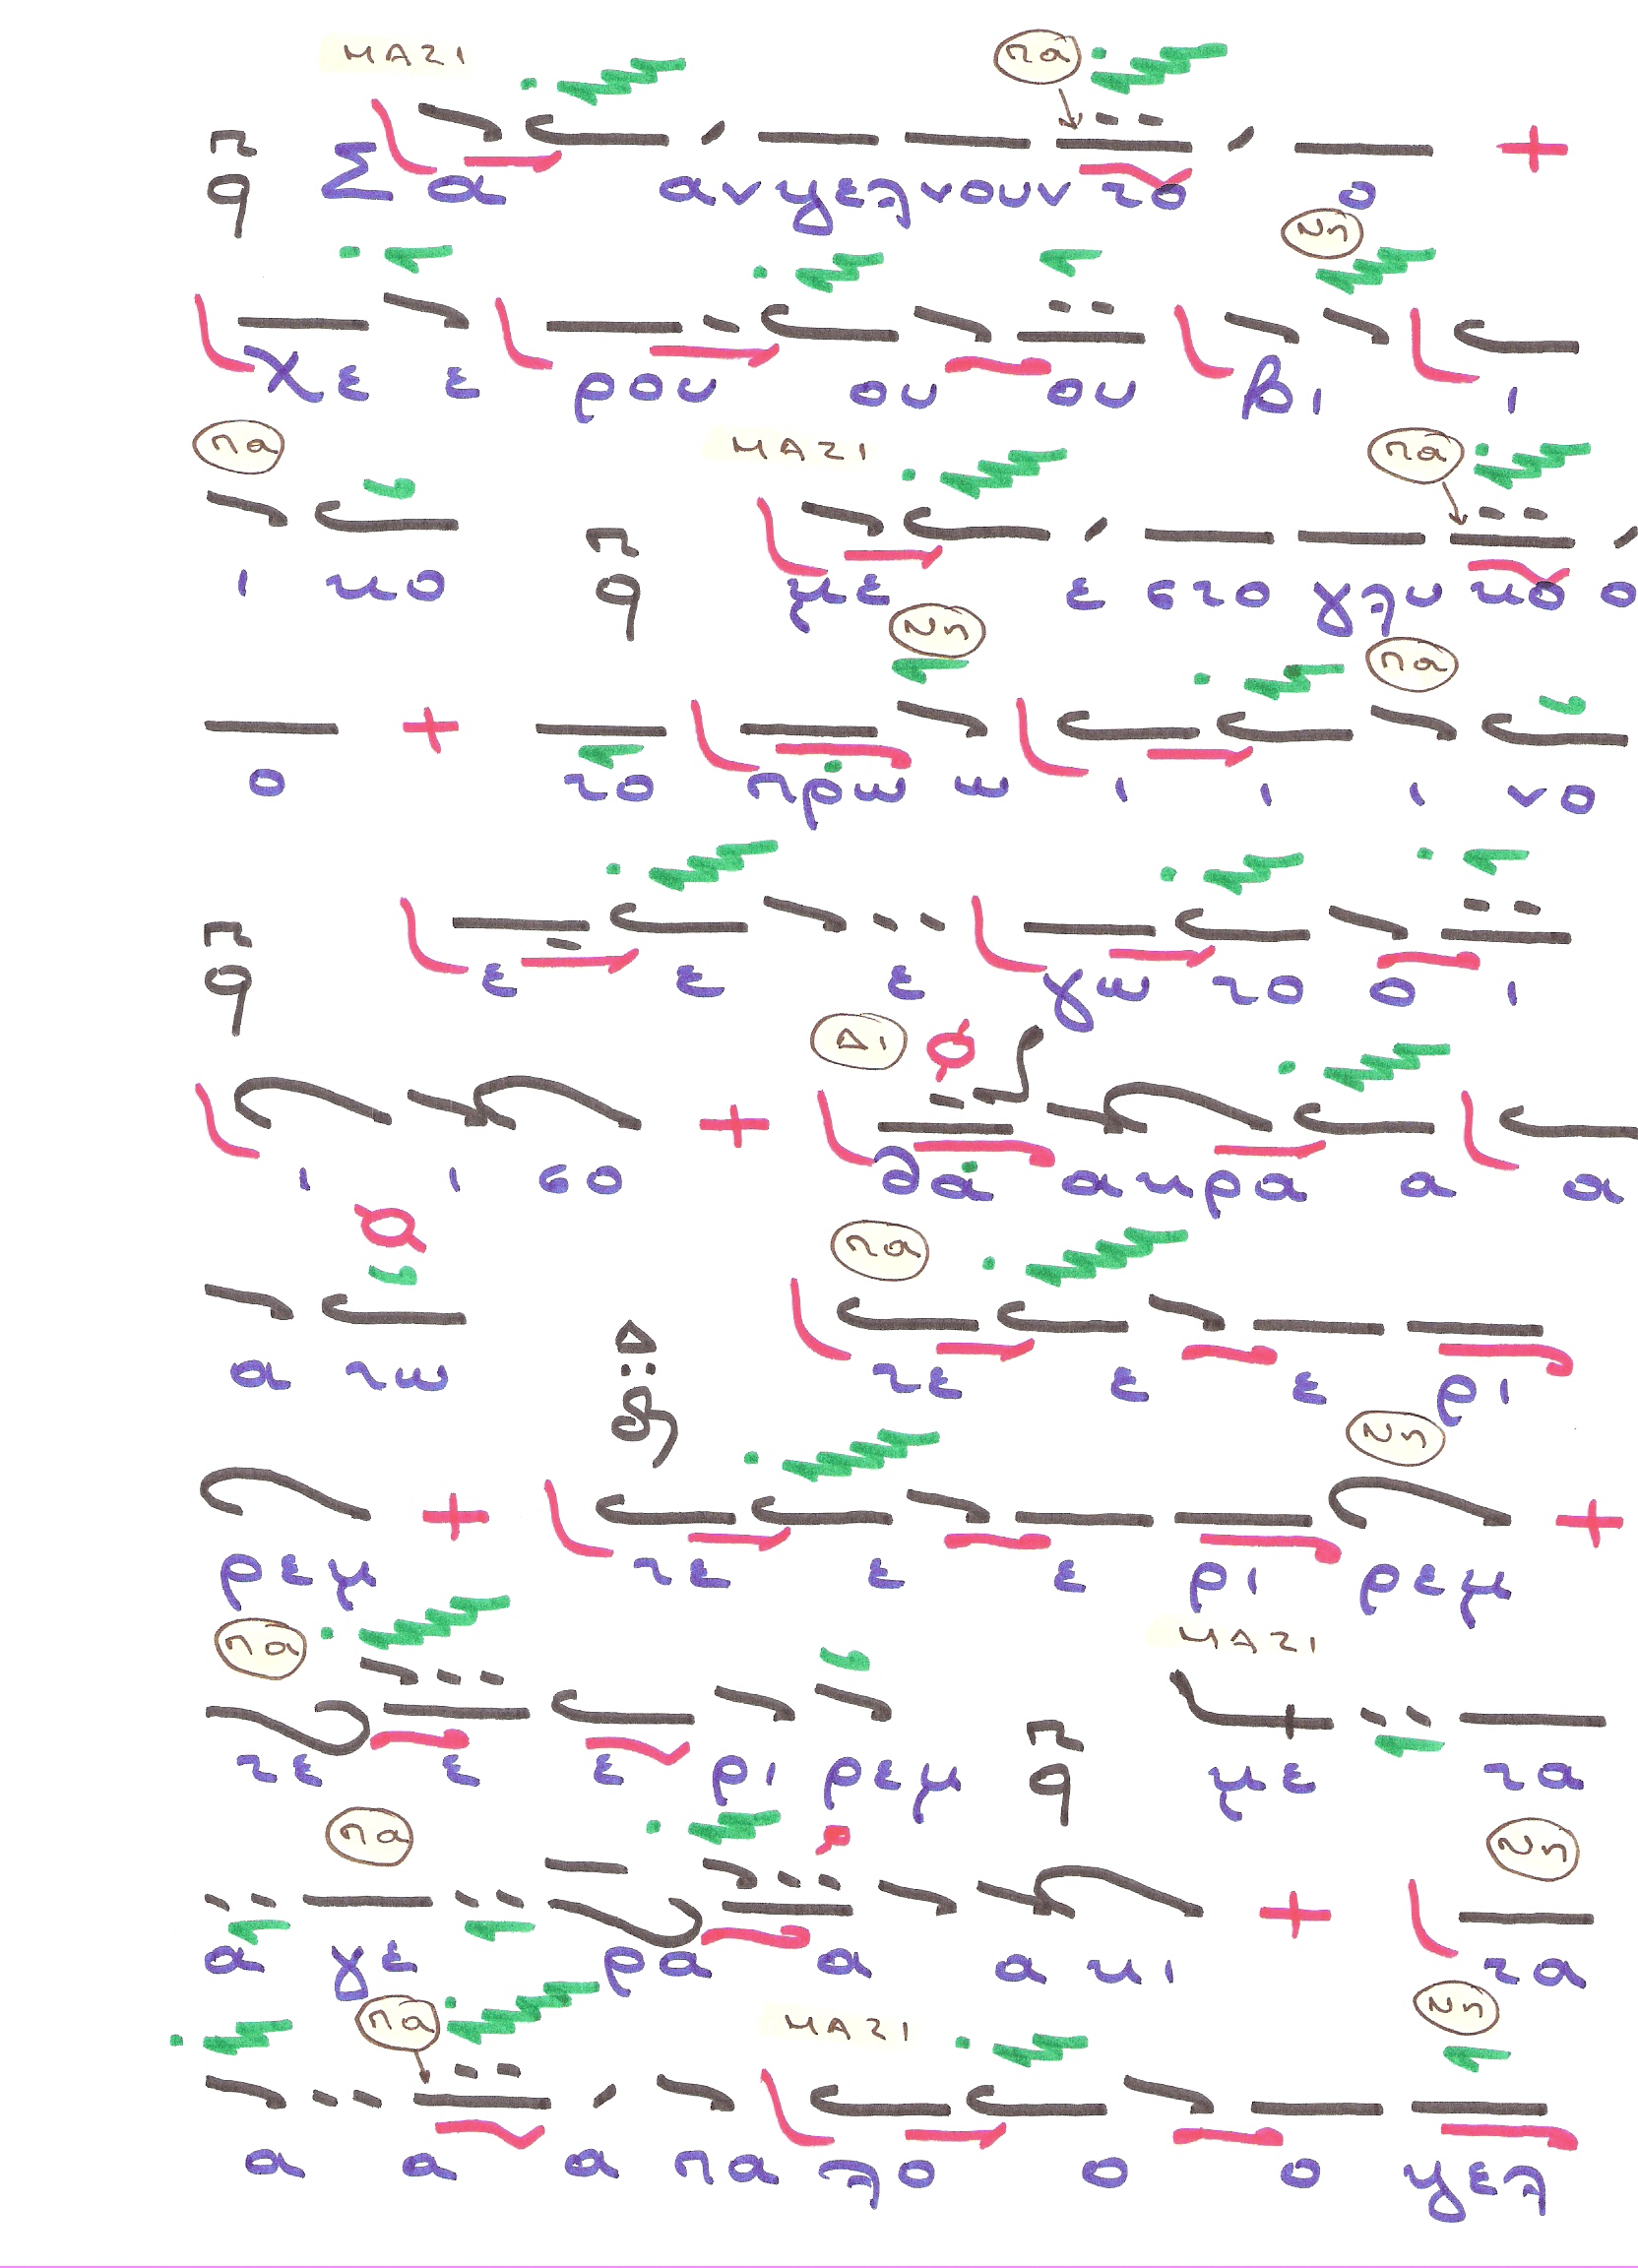 ΜΑΖΙ πα
π Σ α αν ψελ νουν το ο
Νη
χε ε ρου ου ου βι ι
πα ΜΑΖΙ πα
ι κο π με ε στο γλυ κο ο
Νη πα
ο το πρω ω ι ι ι νο
π ε ε ε γω το ο ι
Δι
ι ι σο θα α κρα α α
πα
α τω Δ τε ε ε ρι
Νη
ρεμ τε ε ε ρι ρεμ
πα ΜΑΖΙ
τε ε ε ρι ρεμ π με τα
πα Νη
α γε ρα α α κι τα
πα ΜΑΖΙ Νη
α α α πα λο ο ο ψελ